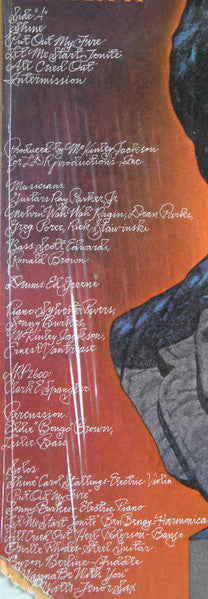 Side "A"
Shine
Put Out My Fire
Let Me Start Tonite
All Cried Out
Intermission
Produced by McKinley Jackson
for LDR Productions, Inc
Musicians
Guitars Ray Parker Jr
Melvin Wah Wah Ragin, Dean Parks,
Greg Poree,
Bass Scott Edwards,
Ronald Brown
Drums Ed Greene
Piano Sylvester Rivers,
Sonny Burke,
McKinley Jackson,
Ernest Vantrease
ARP 2600:
Mark E Spangler
Percussion:
Eddie "Bongo" Brown,
Solos:
Shine Carol Stallings-Electric Violin
"Put Out My Fire"
Sonny Burke-Electric Piano
Let Me Start Tonite Ben Benay-Harmonica
All Cried Out Art Pederson-Banjo
Emile Rhodes-Steel Guitar
Byron Berline-Fiddle
Wanna Be With You"
Watts-Tenor Sax